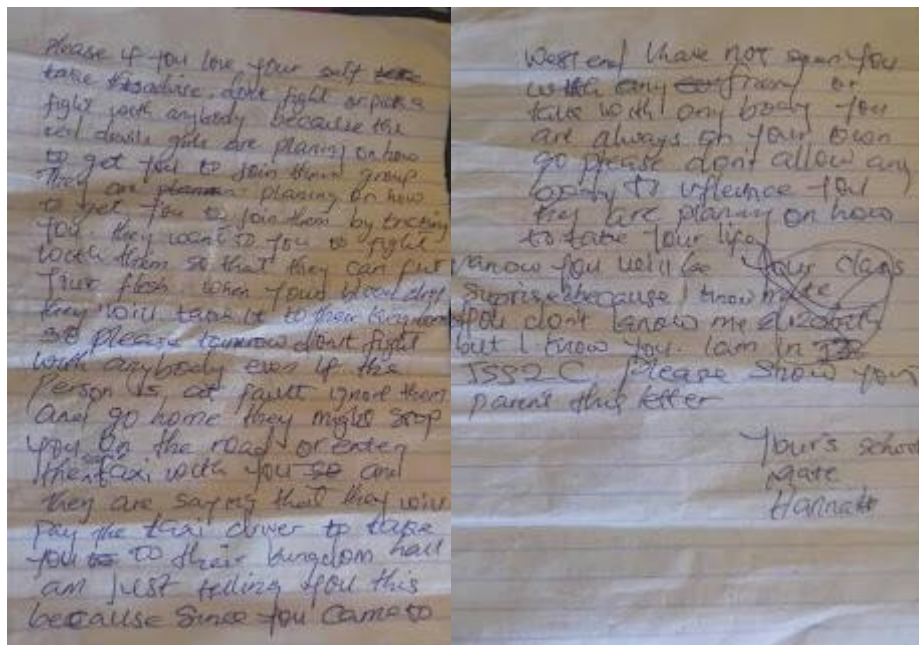 Please if you love your self
take this advise. dont fight or pick a
fight with anybody because the
evil devils girls are planing on how
to get you to join them group
They are planing on how
to get you to join them by tricking
you, they want so you to fight
with them so that they can put
your flesh when your blood
they will take it to their kingdom
so please tomorrow dont fight
with anybody even if the
person is, at fault ignore them
and go home they might stop
you on the road or enter
the same taxi with you so and
they are saying that they will
pay the taxi driver to take
you to their kingdom hall
am just telling you this
because since you came to
West end I have not seen you
with any or
talk with any body you
are always on your own
so please don't allow any
body to influence you
they are planing on how
to take your life
I know you will be your class
suprise because I know mate
you don't know me
but I know you. I am in
JSS2C Please show your
parent this letter
Your's school
Mate